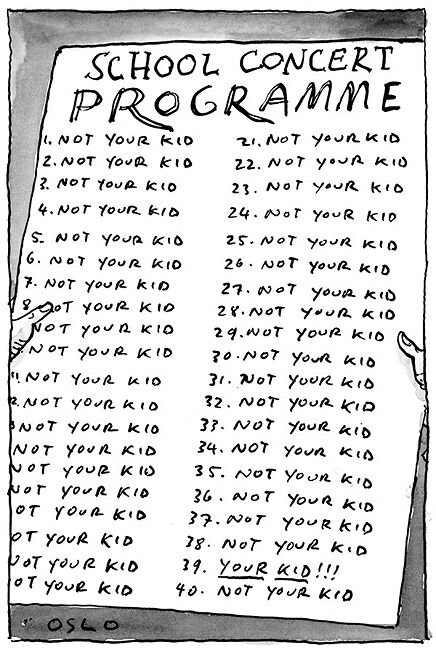 SCHOOL CONCERT
PROGRAMME
1. NOT YOUR KID
2. NOT YOUR KID
3. NOT YOUR KID
4. NOT YOUR KID
5. NOT YOUR KID
6. NOT YOUR KID
7. NOT YOUR KID
8. NOT YOUR KID
NOT YOUR KID
. NOT YOUR KID
1. NOT YOUR KID
2. NOT YOUR KID
3 NOT YOUR KID
NOT YOUR KID
NOT YOUR KID
NOT YOUR KID
OT YOUR KID
OT YOUR KID
NOT YOUR KID
OT YOUR KID
21. NOT YOUR KID
22. NOT YOUR KID
23. NOT YOUR KID
24. NOT YOUR KID
25. NOT YOUR KID
26. NOT YOUR KID
27. NOT YOUR KID
28. NOT YOUR KID
29. NOT YOUR KID
30. NOT YOUR KID
31. NOT YOUR KID
32. NOT YOUR KID
33. NOT YOUR KID
34. NOT YOUR KID
35. NOT YOUR KID
36. NOT YOUR KID
37. NOT YOUR KID
38. NOT YOUR KID
39. YOUR KID!!!
40. NOT YOUR KID
OSLO